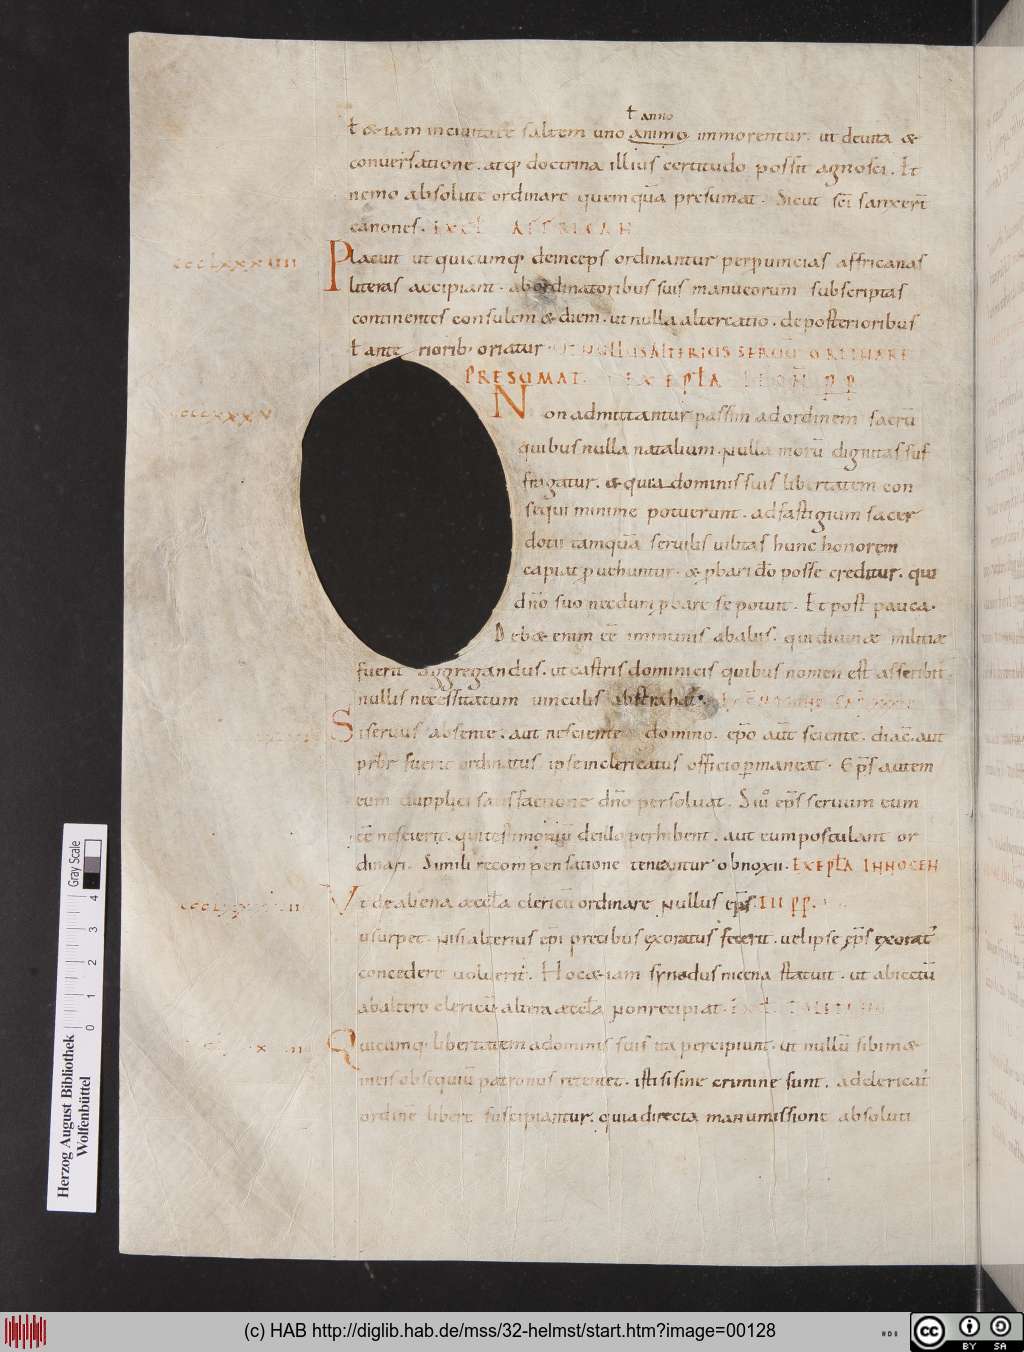 ł anno
ł &iam in ciuitate saltem uno animo inmorentur. ut deuita &
conuersatione. atq; doctrina illius certitudo possit agnosci. Et
nemo absolute ordinare quemquā presumat. Sicut sc̄i sanxer̄t
canones. EXCĒ AFFRICAN
CCCLXXXIIII
Placuit ut quicumq; deinceps ordinantur perpuincias affricanas
literas accipiant. abordinatoribus suis manueorum subscriptas
continentes consulem & diem. ut nulla altercatio. deposterioribus
ł ante riorib; oriatur. UT NULLUS ALTERIUS SERUŪ ORDINARE
PRESUMAT. EXEPŁA LEON P̄P̄
Non admittantur passim adordinem sacrū
quibus nulla natalium. Nulla morū dignitas suf
fragatur. & quia dominis suis libertatem con
sequi minime potuerunt. adfastigium sacer
dotii tamquā seruilis uilitas hunc honorem
capiat puehuntur. & pbari dō posse creditur. qui
dn̄o suo necdum pbare se potuit. Et post pauca.
Deb& enim eē inmunis abalus. qui diuinæ militiæ
fuerit aggregandus. ut castris dominicis quibus nomen est asscribit̄
nullis necessitatum uinculis abstrahat̄.
Si seruus absente. aut nesciente domino. ep̄o aūt sciente. diac̄. aut
prbr̄ fuerit ordinatus ipse inclericatus officio pmaneat. Ep̄s autem
eum dupplici satisfactione dn̄o persoluat. Si ū ep̄s seruum eum
eē nescierit. qui testimoniū deillo perhibent. aut eum postulant or
dinari. Simili recompensatione teneantur obnoxii. EXEPŁA INNOCEN
Ut de aliena æccła clericū ordinare Nullus ep̄s. TII P̄P̄.
usurpet. Nisi alterius ep̄i precibus exoratus fecerit. uel ipse ep̄s exorat᷒
concedere uoluerit. Hoc &iam synodus nicena statuit. ut abiectū
abaltero clericū altera æccła Non recipiat.
Quicumq; libertatem adominis suis ita percipiunt. ut nullū sibim&
ineis obsequiū patronus retentet. isti si sine crimine sunt. adclericat᷒
ordinē liberi suscipiantur. quia directa manumissione absoluti
Herzog August Bibliothek
Wolfenbüttel
0 1 2 3 4
Gray Scale
(c) HAB http://diglib.hab.de/mss/32-helmst/start.htm?image=00128
cc
BY SA